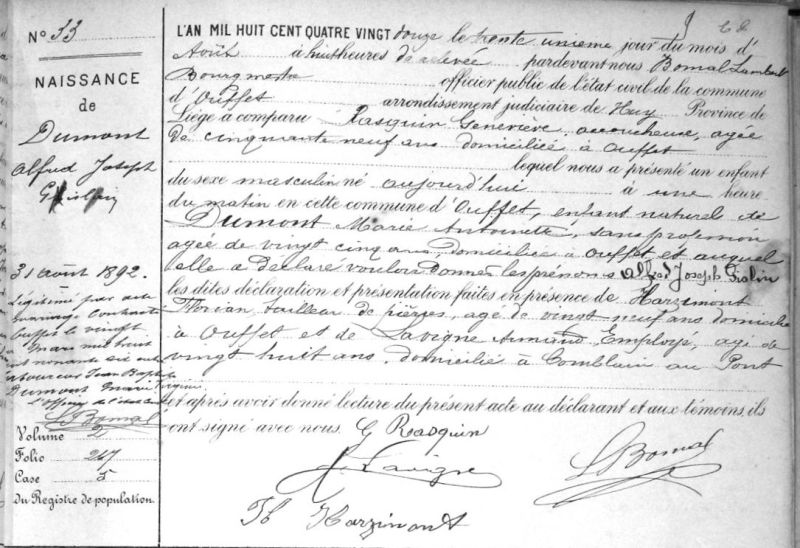 N° 33
NAISSANCE
de
Dumont
Alfred Joseph
Ghislain
31 août 1892.
Légitimé par acte
mariage contracté
Ouffet le vingt
mars mil huit
cent nonante six
Jean Bapt
Dumont Marie
L'Officier de l'état civil
L Bomal
Volume 2
Folio 247
Case 5
du Registre de population.
L'AN MIL HUIT CENT QUATRE VINGT douze le trente unième jour du mois d'
Août à huit heures de relevée pardevant nous Bomal Lambert
Bourgmestre officier public de l'état civil de la commune
d'Ouffet arrondissement judiciaire de Huy Province de
Liège a comparu Rasquin Geneviève, accoucheuse, agée
de cinquante neuf ans domiciliée à Ouffet
lequel nous a présenté un enfant
du sexe masculin né aujourd'hui à une heure
du matin en cette commune d'Ouffet, enfant naturel de
Dumont Marie Antoinette, sans profession
agée de vingt cinq ans, domiciliée à Ouffet et auquel
elle a déclaré vouloir donner les prénoms Alfred Joseph
les dites déclaration et présentation faites en présence de Harzimont
Florian, tailleur de pierres, agé de vingt neuf ans domicilié
à Ouffet et de Lavigne Armand, Employé, agé de
vingt huit ans, domicilié à Comblain au Pont
et après avoir donné lecture du présent acte au déclarant et aux témoins, ils
ont signé avec nous. G Rasquin
Lavigne
L Bomal
Harzimont